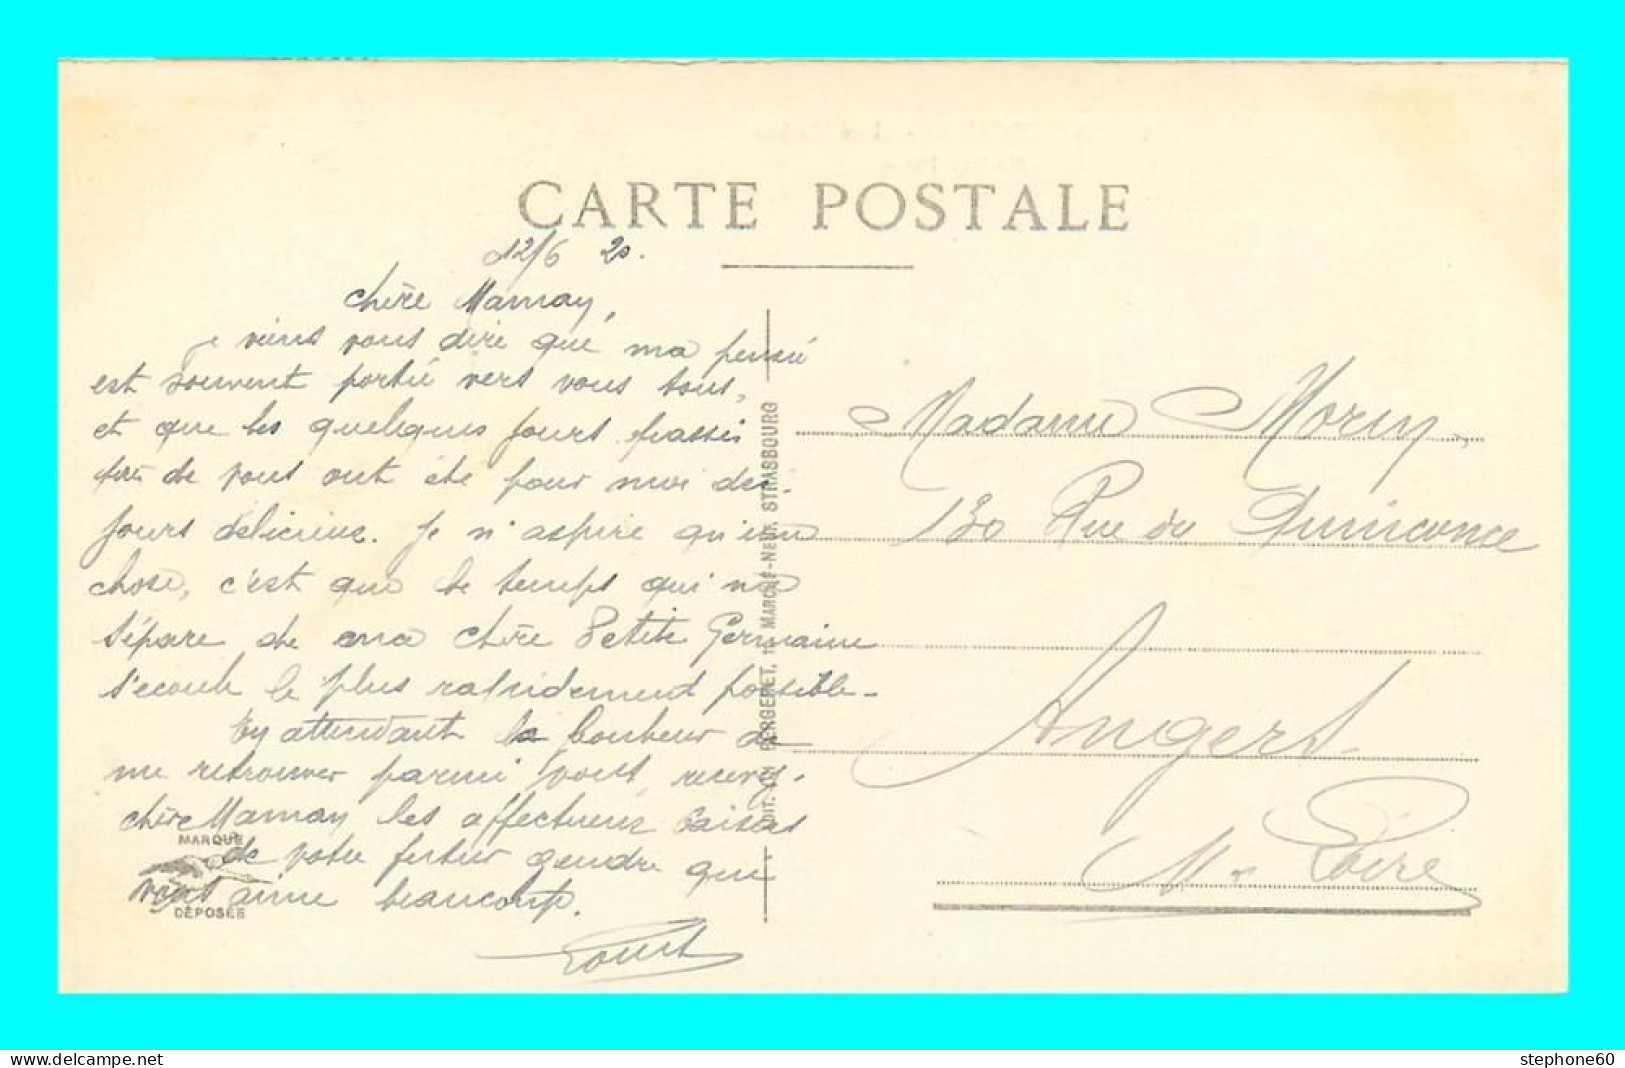 CARTE POSTALE
12/6 20.
chère Maman,
je viens vous dire que ma pensée
est souvent portée vers vous tous,
et que les quelques jours passés
près de vous ont été pour moi des
jours délicieux. Je n'aspire qu'une
chose, c'est que le temps qui me
sépare de ma chère Petite Germaine
s'écoule le plus rapidement possible.
En attendant le bonheur de
me retrouver parmi vous, recevez
chère Maman les affectueux baisers
de votre futur gendre qui
vous aime beaucoup.
Louis
MARQUE
DÉPOSÉE
STRASBOURG
Madame
130 Rue du
Angers
M & Loire
www.delcampe.net
stephone60